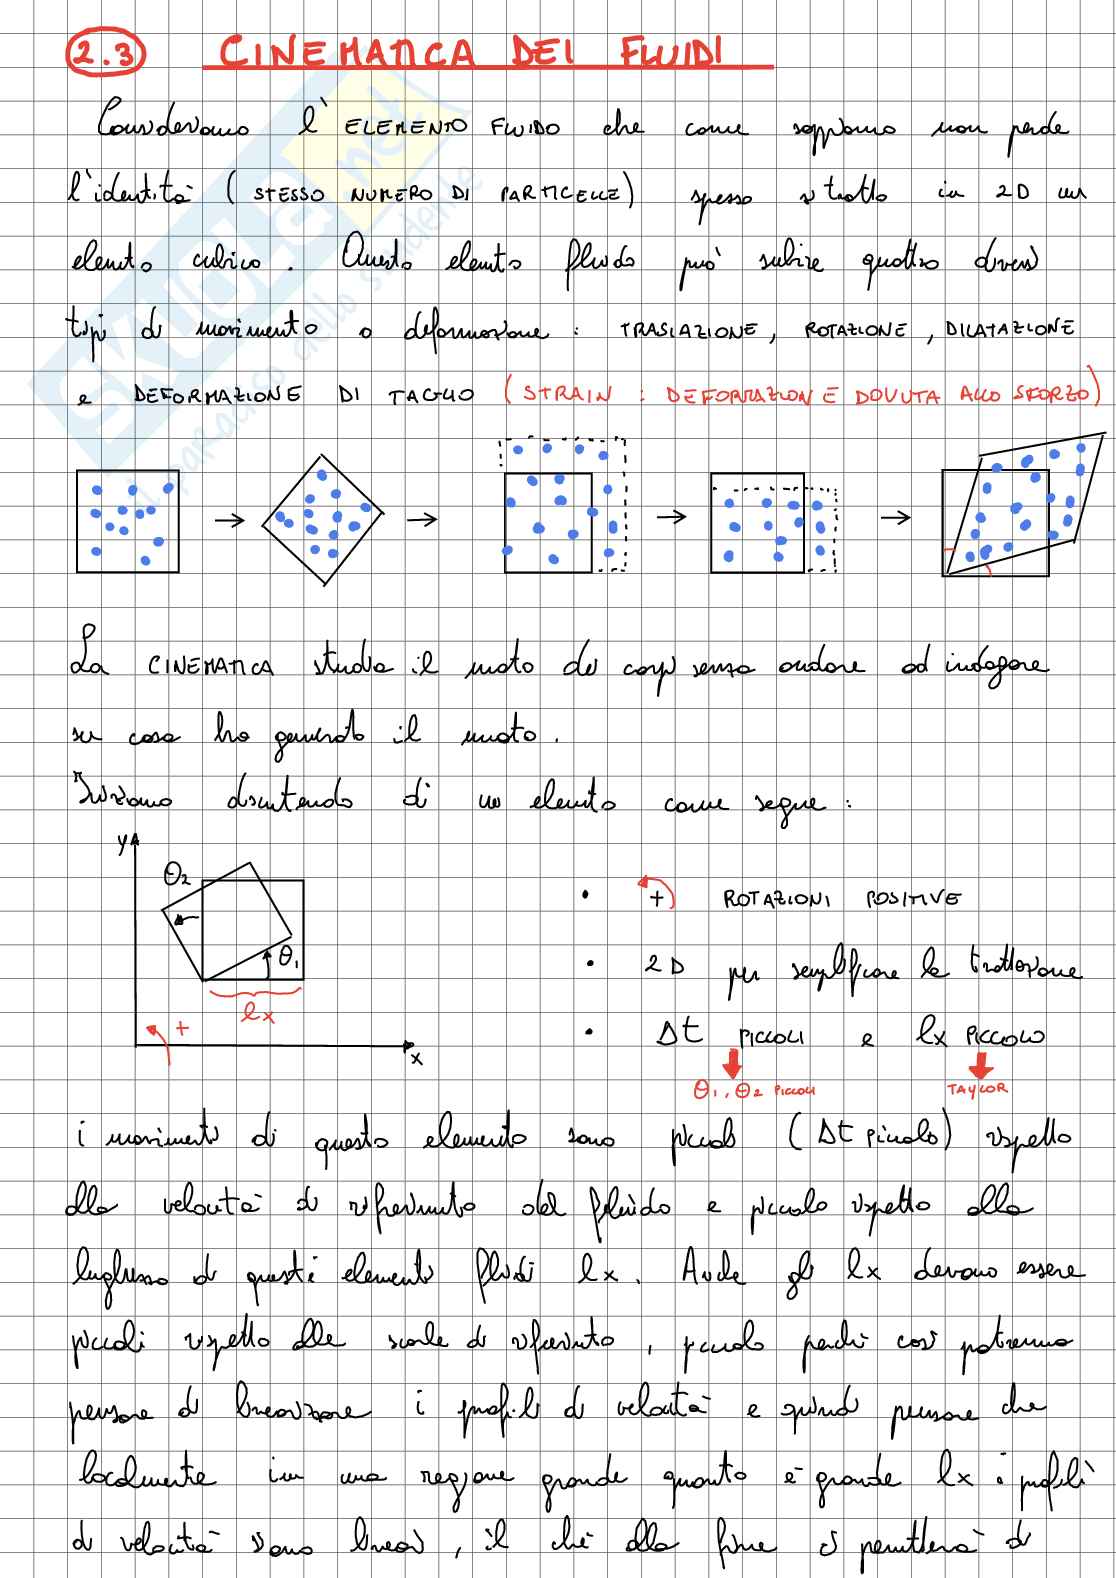 2.3 CINEMATICA DEI FLUIDI
Consideriamo l'ELEMENTO FLUIDO che come sappiamo non perde
l'identità (STESSO NUMERO DI PARTICELLE) spesso si tratta in 2D un
elemento cubico. Questo elemento fluido può subire quattro diversi
tipi di movimento o deformazione: TRASLAZIONE, ROTAZIONE, DILATAZIONE
e DEFORMAZIONE DI TAGLIO (STRAIN: DEFORMAZIONE DOVUTA ALLO SFORZO)
La CINEMATICA studia il moto dei corpi senza andare ad indagare
su cosa ha generato il moto.
Iniziamo discutendo di un elemento come segue:
y
θ2
θ1
lx
+
x
• + ROTAZIONI POSITIVE
• 2D per semplificare la trattazione
• Δt PICCOLI e lx PICCOLO
θ1, θ2 PICCOLI TAYLOR
i movimenti di questo elemento sono piccoli (Δt piccolo) rispetto
alla velocità di riferimento del fluido e piccolo rispetto alla
lunghezza di questi elementi fluidi lx. Anche gli lx devono essere
piccoli rispetto alle scale di riferimento, piccolo perché così potremmo
pensare di linearizzare i profili di velocità e quindi pensare che
localmente in una regione grande quanto è grande lx i profili
di velocità siano lineari, il che alla fine ci permetterà di
SKUOLA.net
il paradiso dello studente